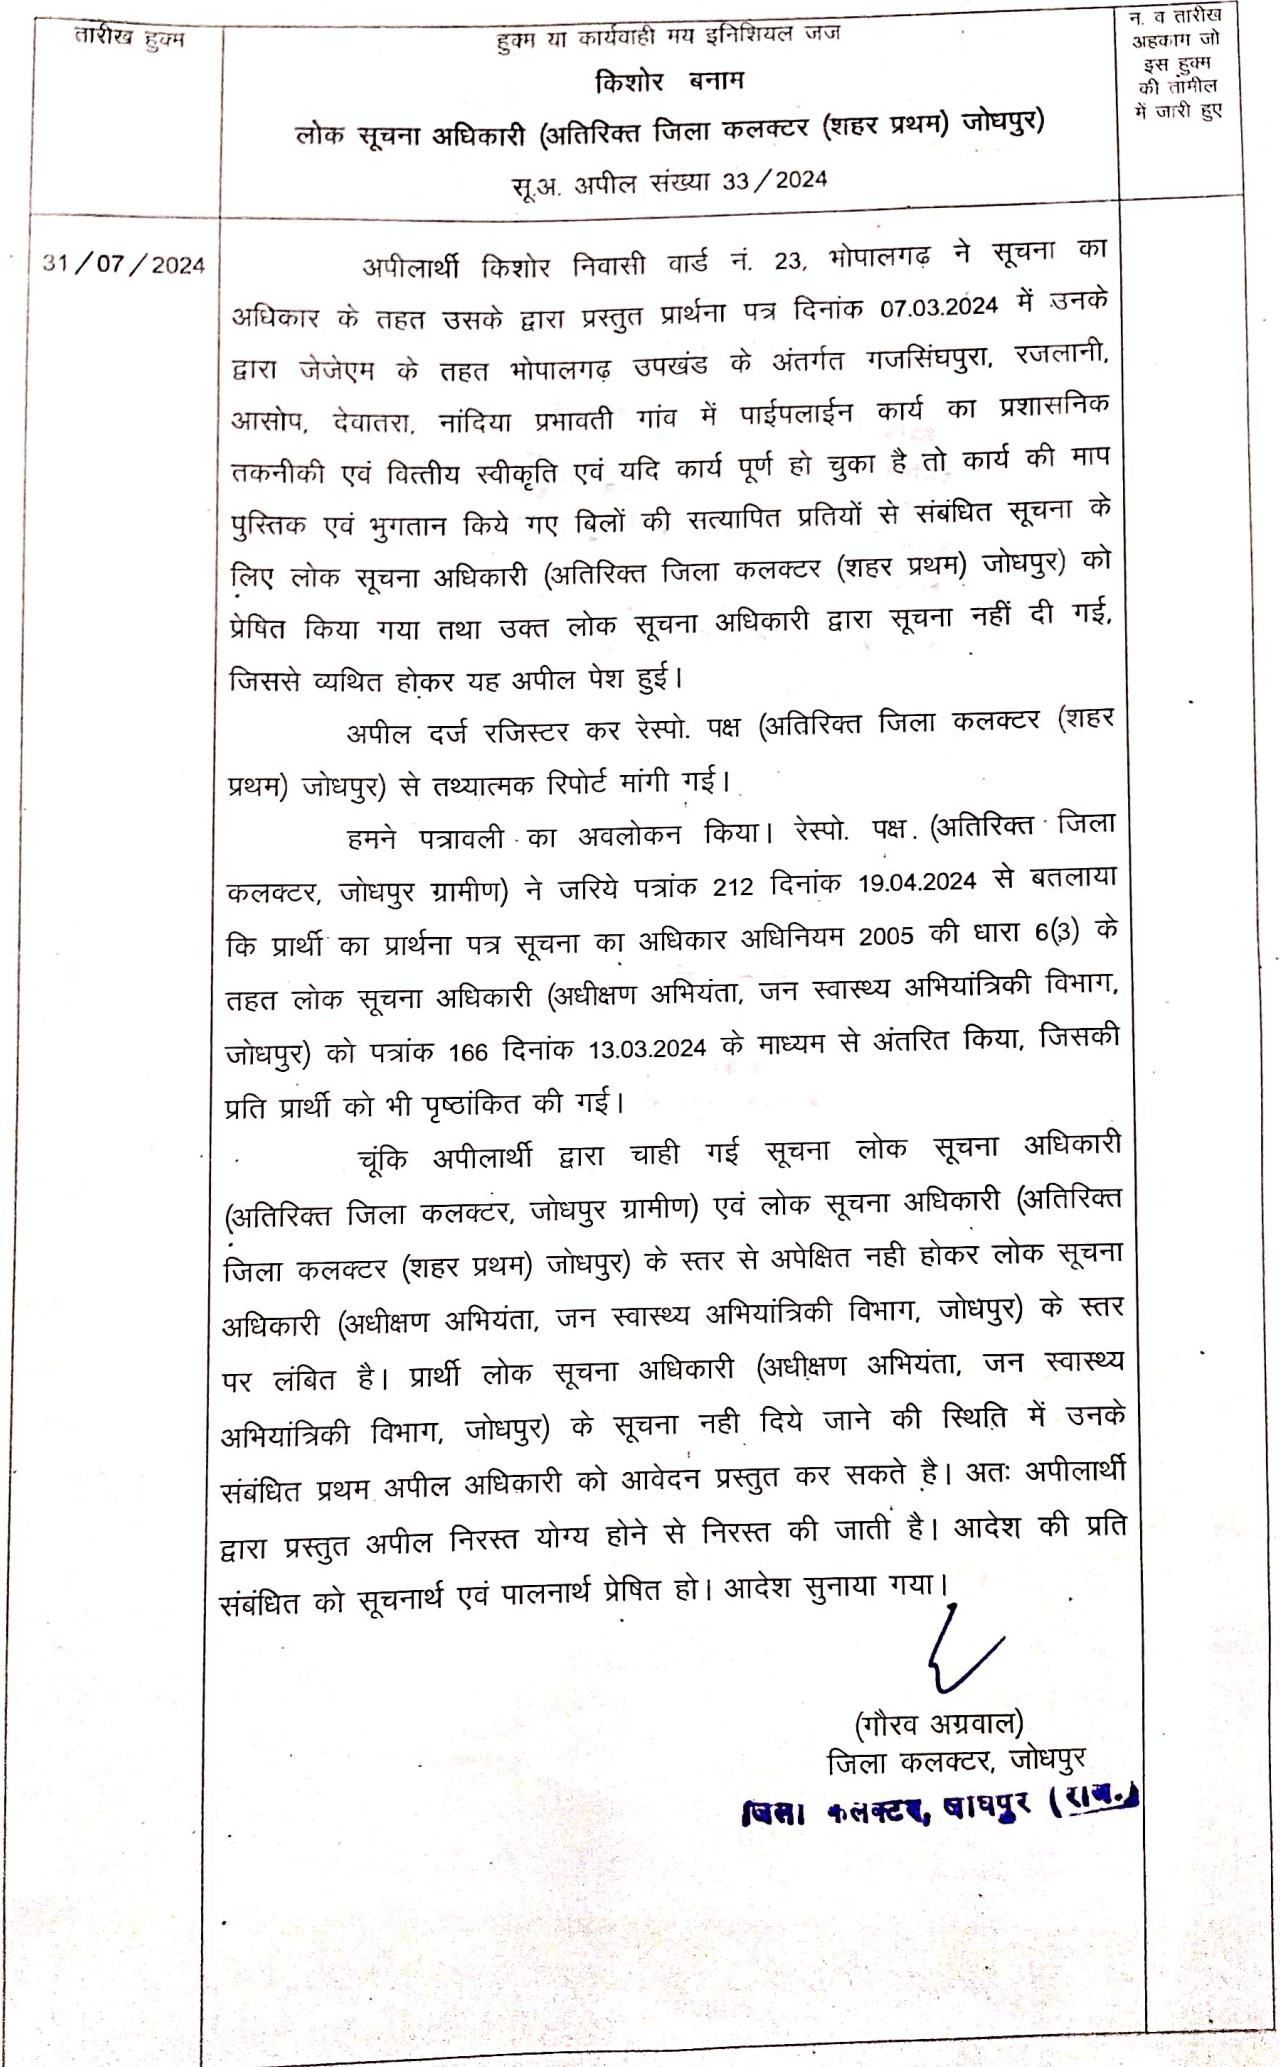 तारीख हुक्म
हुक्म या कार्यवाही मय इनिशियल जज
किशोर बनाम
लोक सूचना अधिकारी (अतिरिक्त जिला कलक्टर (शहर प्रथम) जोधपुर)
सू.अ. अपील संख्या 33/2024
न. व तारीख
अहकाम जो
इस हुक्म
की तामील
में जारी हुए
31/07/2024
अपीलार्थी किशोर निवासी वार्ड नं. 23, भोपालगढ़ ने सूचना का
अधिकार के तहत उसके द्वारा प्रस्तुत प्रार्थना पत्र दिनांक 07.03.2024 में उनके
द्वारा जेजेएम के तहत भोपालगढ़ उपखंड के अंतर्गत गजसिंघपुरा, रजलानी,
आसोप, देवातरा, नांदिया प्रभावती गांव में पाईपलाईन कार्य का प्रशासनिक
तकनीकी एवं वित्तीय स्वीकृति एवं यदि कार्य पूर्ण हो चुका है तो कार्य की माप
पुस्तिक एवं भुगतान किये गए बिलों की सत्यापित प्रतियों से संबंधित सूचना के
लिए लोक सूचना अधिकारी (अतिरिक्त जिला कलक्टर (शहर प्रथम) जोधपुर) को
प्रेषित किया गया तथा उक्त लोक सूचना अधिकारी द्वारा सूचना नहीं दी गई,
जिससे व्यथित होकर यह अपील पेश हुई।
अपील दर्ज रजिस्टर कर रेस्पो. पक्ष (अतिरिक्त जिला कलक्टर (शहर
प्रथम) जोधपुर) से तथ्यात्मक रिपोर्ट मांगी गई।
हमने पत्रावली का अवलोकन किया। रेस्पो. पक्ष (अतिरिक्त जिला
कलक्टर, जोधपुर ग्रामीण) ने जरिये पत्रांक 212 दिनांक 19.04.2024 से बतलाया
कि प्रार्थी का प्रार्थना पत्र सूचना का अधिकार अधिनियम 2005 की धारा 6(3) के
तहत लोक सूचना अधिकारी (अधीक्षण अभियंता, जन स्वास्थ्य अभियांत्रिकी विभाग,
जोधपुर) को पत्रांक 166 दिनांक 13.03.2024 के माध्यम से अंतरित किया, जिसकी
प्रति प्रार्थी को भी पृष्ठांकित की गई।
चूंकि अपीलार्थी द्वारा चाही गई सूचना लोक सूचना अधिकारी
(अतिरिक्त जिला कलक्टर, जोधपुर ग्रामीण) एवं लोक सूचना अधिकारी (अतिरिक्त
जिला कलक्टर (शहर प्रथम) जोधपुर) के स्तर से अपेक्षित नही होकर लोक सूचना
अधिकारी (अधीक्षण अभियंता, जन स्वास्थ्य अभियांत्रिकी विभाग, जोधपुर) के स्तर
पर लंबित है। प्रार्थी लोक सूचना अधिकारी (अधीक्षण अभियंता, जन स्वास्थ्य
अभियांत्रिकी विभाग, जोधपुर) के सूचना नही दिये जाने की स्थिति में उनके
संबंधित प्रथम अपील अधिकारी को आवेदन प्रस्तुत कर सकते है। अतः अपीलार्थी
द्वारा प्रस्तुत अपील निरस्त योग्य होने से निरस्त की जाती है। आदेश की प्रति
संबंधित को सूचनार्थ एवं पालनार्थ प्रेषित हो। आदेश सुनाया गया।
(गौरव अग्रवाल)
जिला कलक्टर, जोधपुर
जिला कलक्टर, जोधपुर (राज.)